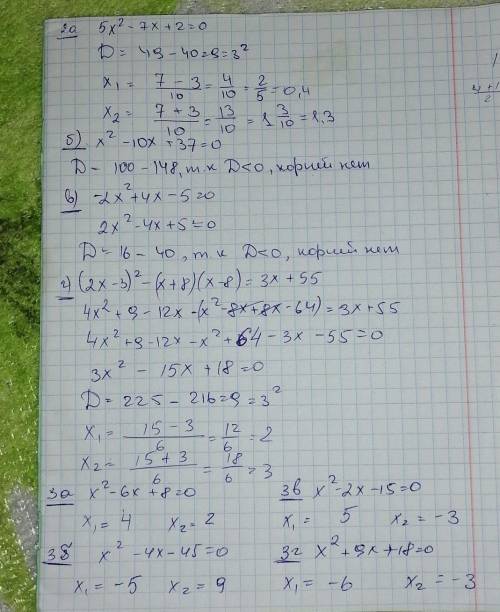 2а 5x² - 7x + 2 = 0
D = 49 - 40 = 9 = 3²
x₁ = (7 - 3)/10 = 4/10 = 2/5 = 0,4
x₂ = (7 + 3)/10 = 13/10 = 1 3/10 = 1,3
б) x² - 10x + 37 = 0
D = 100 - 148, т к D < 0, корней нет
в) -2x² + 4x - 5 = 0
2x² - 4x + 5 = 0
D = 16 - 40, т к D < 0, корней нет
г) (2x - 3)² - (x + 8)(x - 8) = 3x + 55
4x² + 9 - 12x - (x² - 8x + 8x - 64) = 3x + 55
4x² + 9 - 12x - x² + 64 - 3x - 55 = 0
3x² - 15x + 18 = 0
D = 225 - 216 = 9 = 3²
x₁ = (15 - 3)/6 = 12/6 = 2
x₂ = (15 + 3)/6 = 18/6 = 3
3а x² - 6x + 8 = 0 3в x² - 2x - 15 = 0
x₁ = 4 x₂ = 2 x₁ = 5 x₂ = -3
3б x² - 4x - 45 = 0 3г x² + 9x + 18 = 0
x₁ = -5 x₂ = 9 x₁ = -6 x₂ = -3